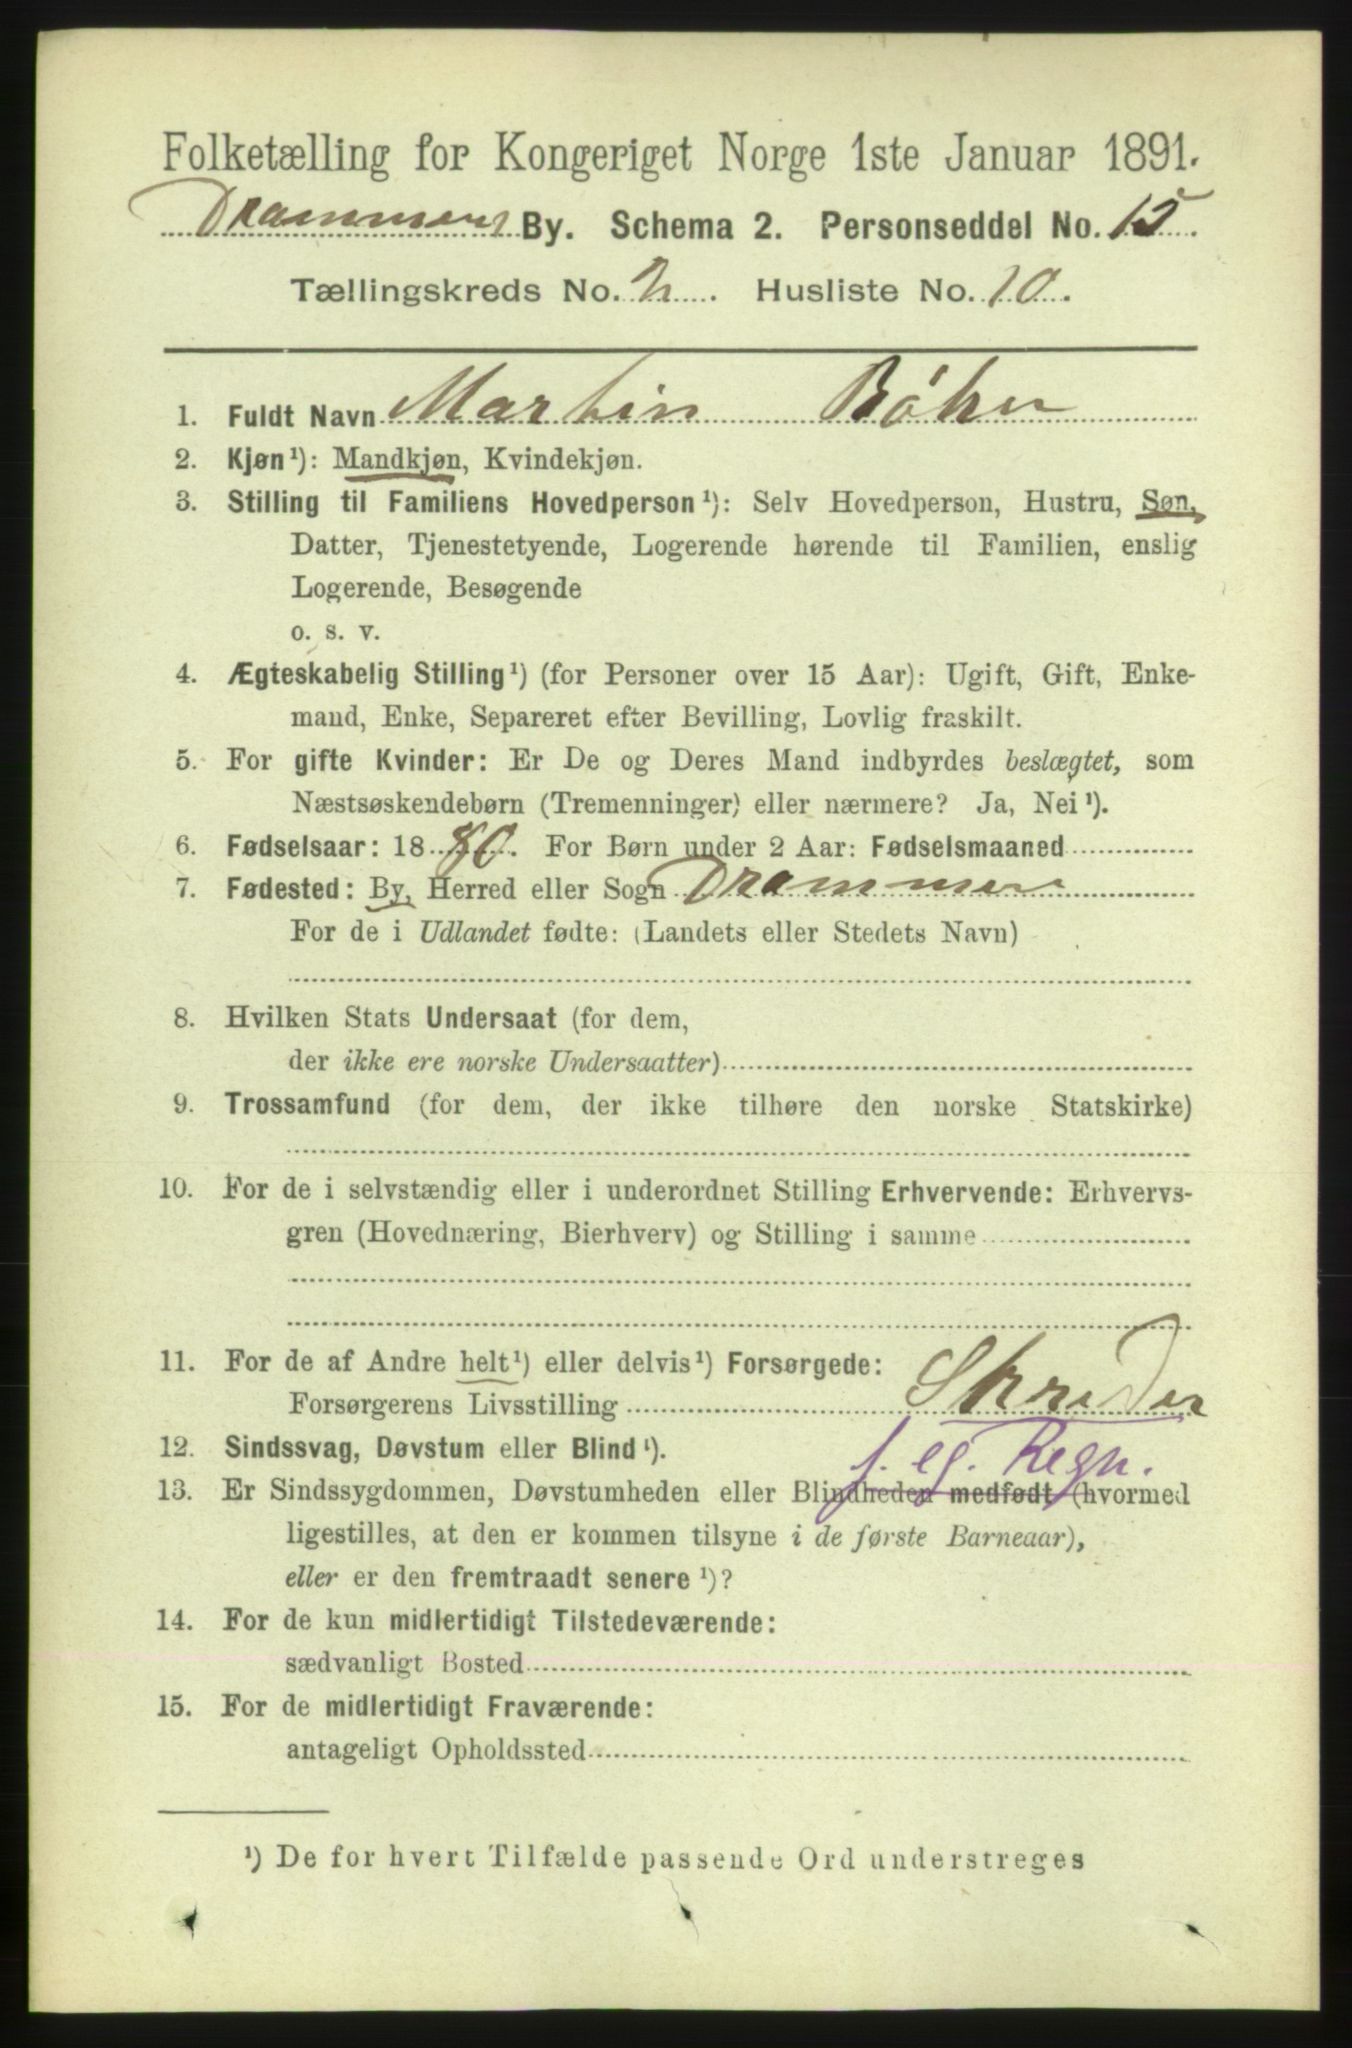 Folketælling for Kongeriget Norge 1ste Januar 1891.
Drammens By. Schema 2. Personseddel No. 15
Tællingskreds No. 2. Husliste No. 10.
1. Fuldt Navn Martin Böker
2. Kjøn¹): Mandkjøn, Kvindekjøn.
3. Stilling til Familiens Hovedperson¹): Selv Hovedperson, Hustru, Søn,
Datter, Tjenestetyende, Logerende hørende til Familien, enslig
Logerende, Besøgende
o. s. v.
4. Ægteskabelig Stilling¹) (for Personer over 15 Aar): Ugift, Gift, Enke-
mand, Enke, Separeret efter Bevilling, Lovlig fraskilt.
5. For gifte Kvinder: Er De og Deres Mand indbyrdes beslægtet, som
Næstsøskendebørn (Tremenninger) eller nærmere? Ja, Nei¹).
6. Fødselsaar: 1880. For Børn under 2 Aar: Fødselsmaaned
7. Fødested: By, Herred eller Sogn Drammen
For de i Udlandet fødte: (Landets eller Stedets Navn)
8. Hvilken Stats Undersaat (for dem,
der ikke ere norske Undersaatter)
9. Trossamfund (for dem, der ikke tilhøre den norske Statskirke)
10. For de i selvstændig eller i underordnet Stilling Erhvervende: Erhvervs-
gren (Hovednæring, Bierhverv) og Stilling i samme
11. For de af Andre helt¹) eller delvis¹) Forsørgede:
Forsørgerens Livsstilling Skræder
f. eg. Regn.
12. Sindssvag, Døvstum eller Blind¹).
13. Er Sindssygdommen, Døvstumheden eller Blindheden medfødt (hvormed
ligestilles, at den er kommen tilsyne i de første Barneaar),
eller er den fremtraadt senere¹)?
14. For de kun midlertidigt Tilstedeværende:
sædvanligt Bosted
15. For de midlertidigt Fraværende:
antageligt Opholdssted
¹) De for hvert Tilfælde passende Ord understreges